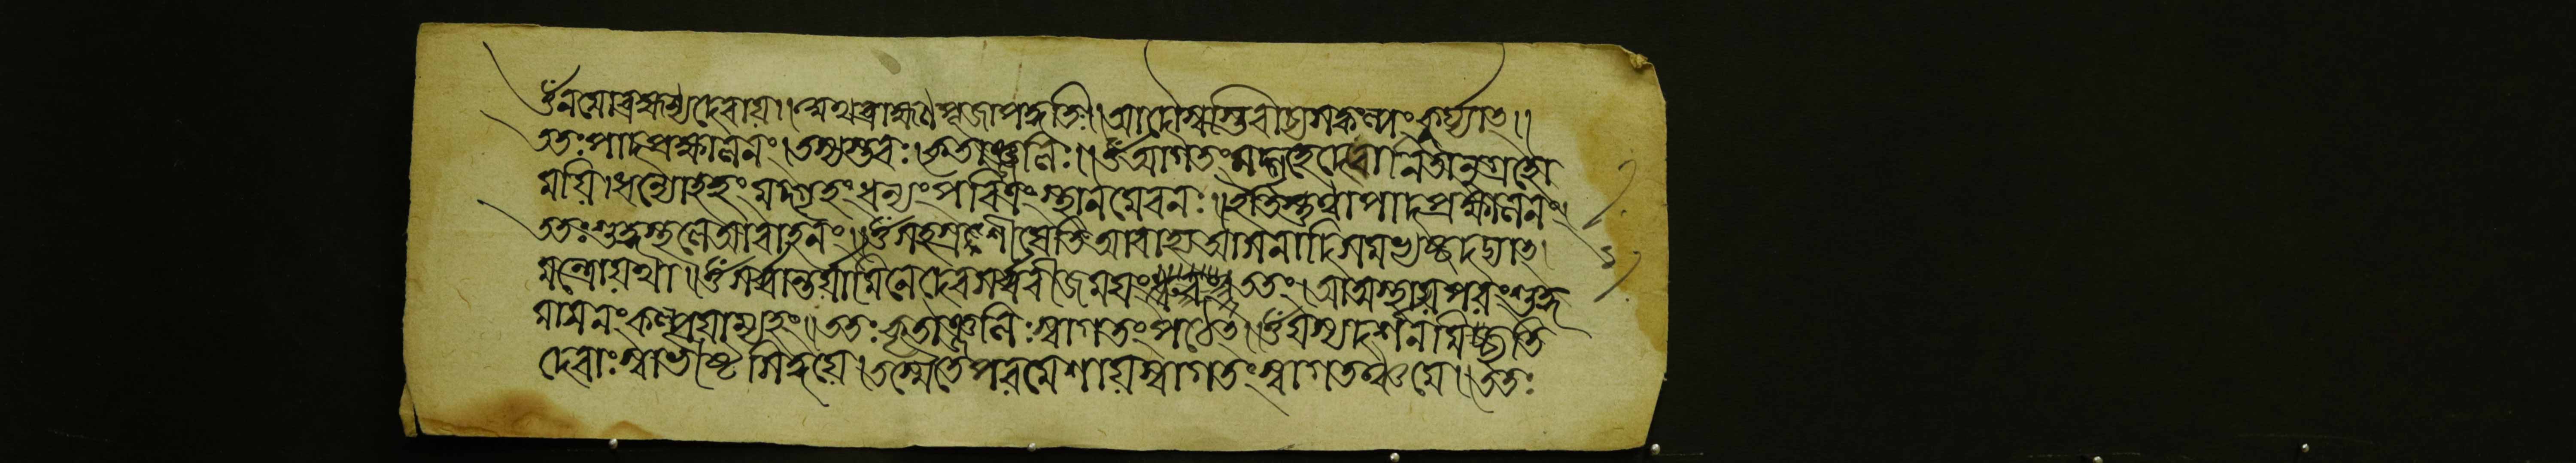 ওঁ নমো ব্রহ্মণ্যদেবায়।। অথ ব্রাহ্মণপূজাপদ্ধতিঃ।। আদৌ স্বস্তিবাচ্য সঙ্কল্পং কুর্য্যাৎ।।
ততঃ পাদপ্রক্ষালনং। তস্যস্তবঃ। কৃতাঞ্জলিঃ।। ওঁ আগতং মদ্গৃহে দেবানিঅনুগ্রহো
ময়ি। ধন্যোহহং মদ্গৃহং ধন্যং পবিত্রং স্থানমেবনঃ।। ইতিস্তুত্বা পাদপ্রক্ষালনং।
ততঃ শুদ্ধস্থলে আবাহনং।। ওঁ সহস্রশীর্ষেতি আবাহ্য আসনাদি দদ্যাৎ।
মন্ত্রোযথা।। ওঁ সর্ব্বান্তর্যামিনে দেবসর্ব্ববীজময়ং ততং। আত্মস্থায়পরং শুদ্ধ
মাসনং কল্পয়াম্যহং।। ততঃ কৃতাঞ্জলিঃ স্বাগতং পঠেৎ।। ওঁ যস্য দর্শনমিচ্ছন্তি
দেবাঃ স্বাভীষ্টসিদ্ধয়ে। তস্মৈ তে পরমেশায় স্বাগতং স্বাগতঞ্চ মে।। ততঃ